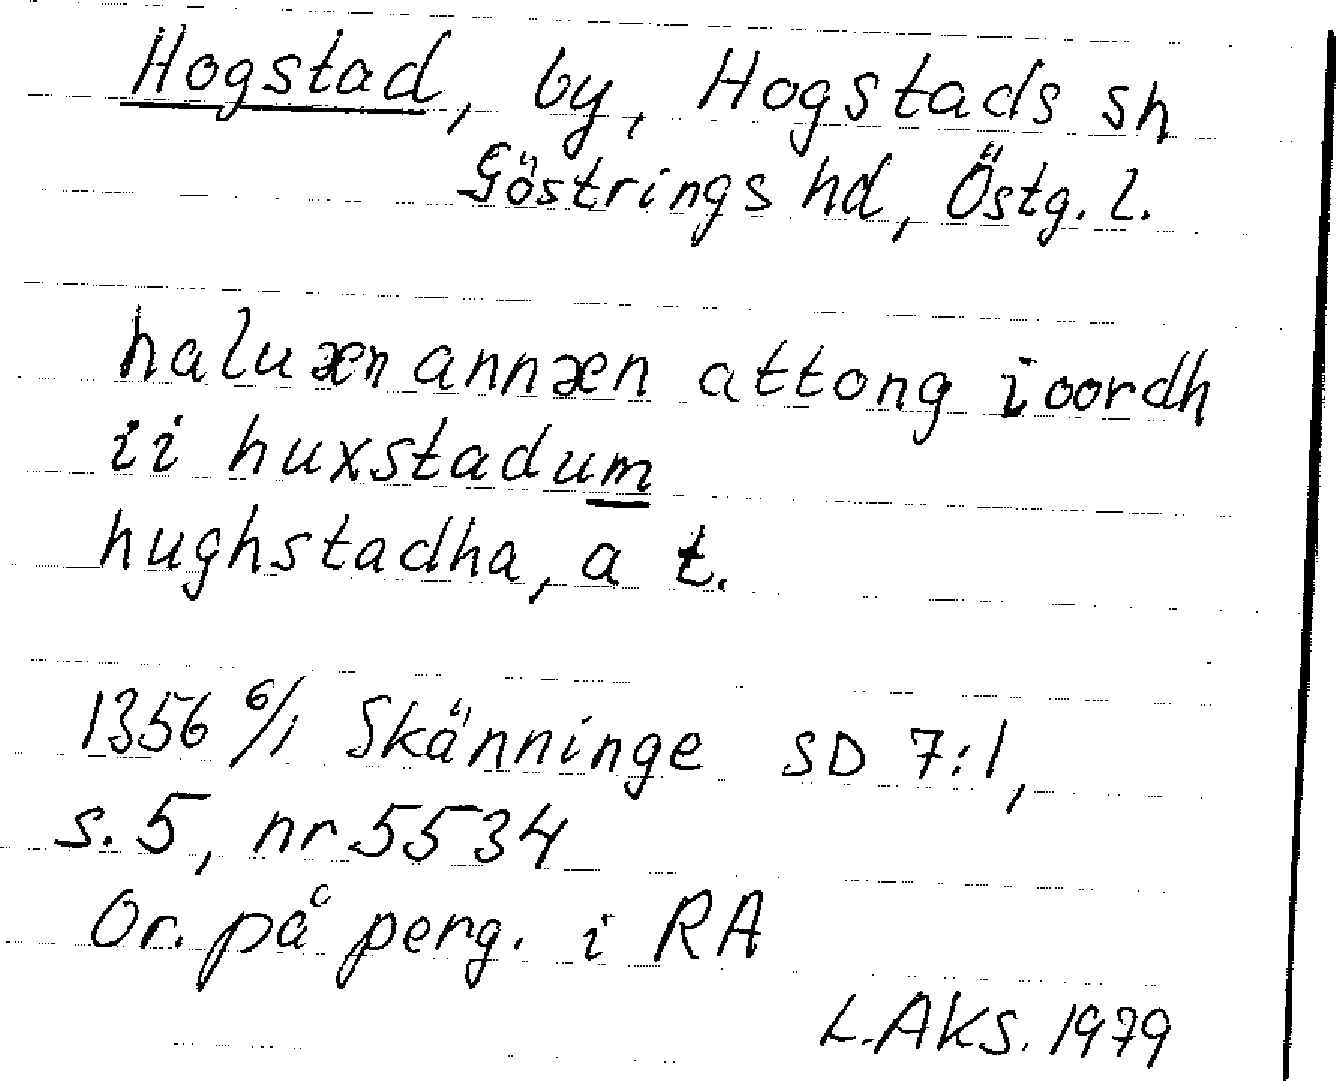 Hogstad, by, Hogstads sn
Göstrings hd, Östg. l.
haluæn annæn attong ioordh
ii huxstadum
hughstadha, a t.
1356 6/1 Skänninge SD 7:1,
s. 5, nr 5534
Or. på perg. i RA
L. AKS. 1979